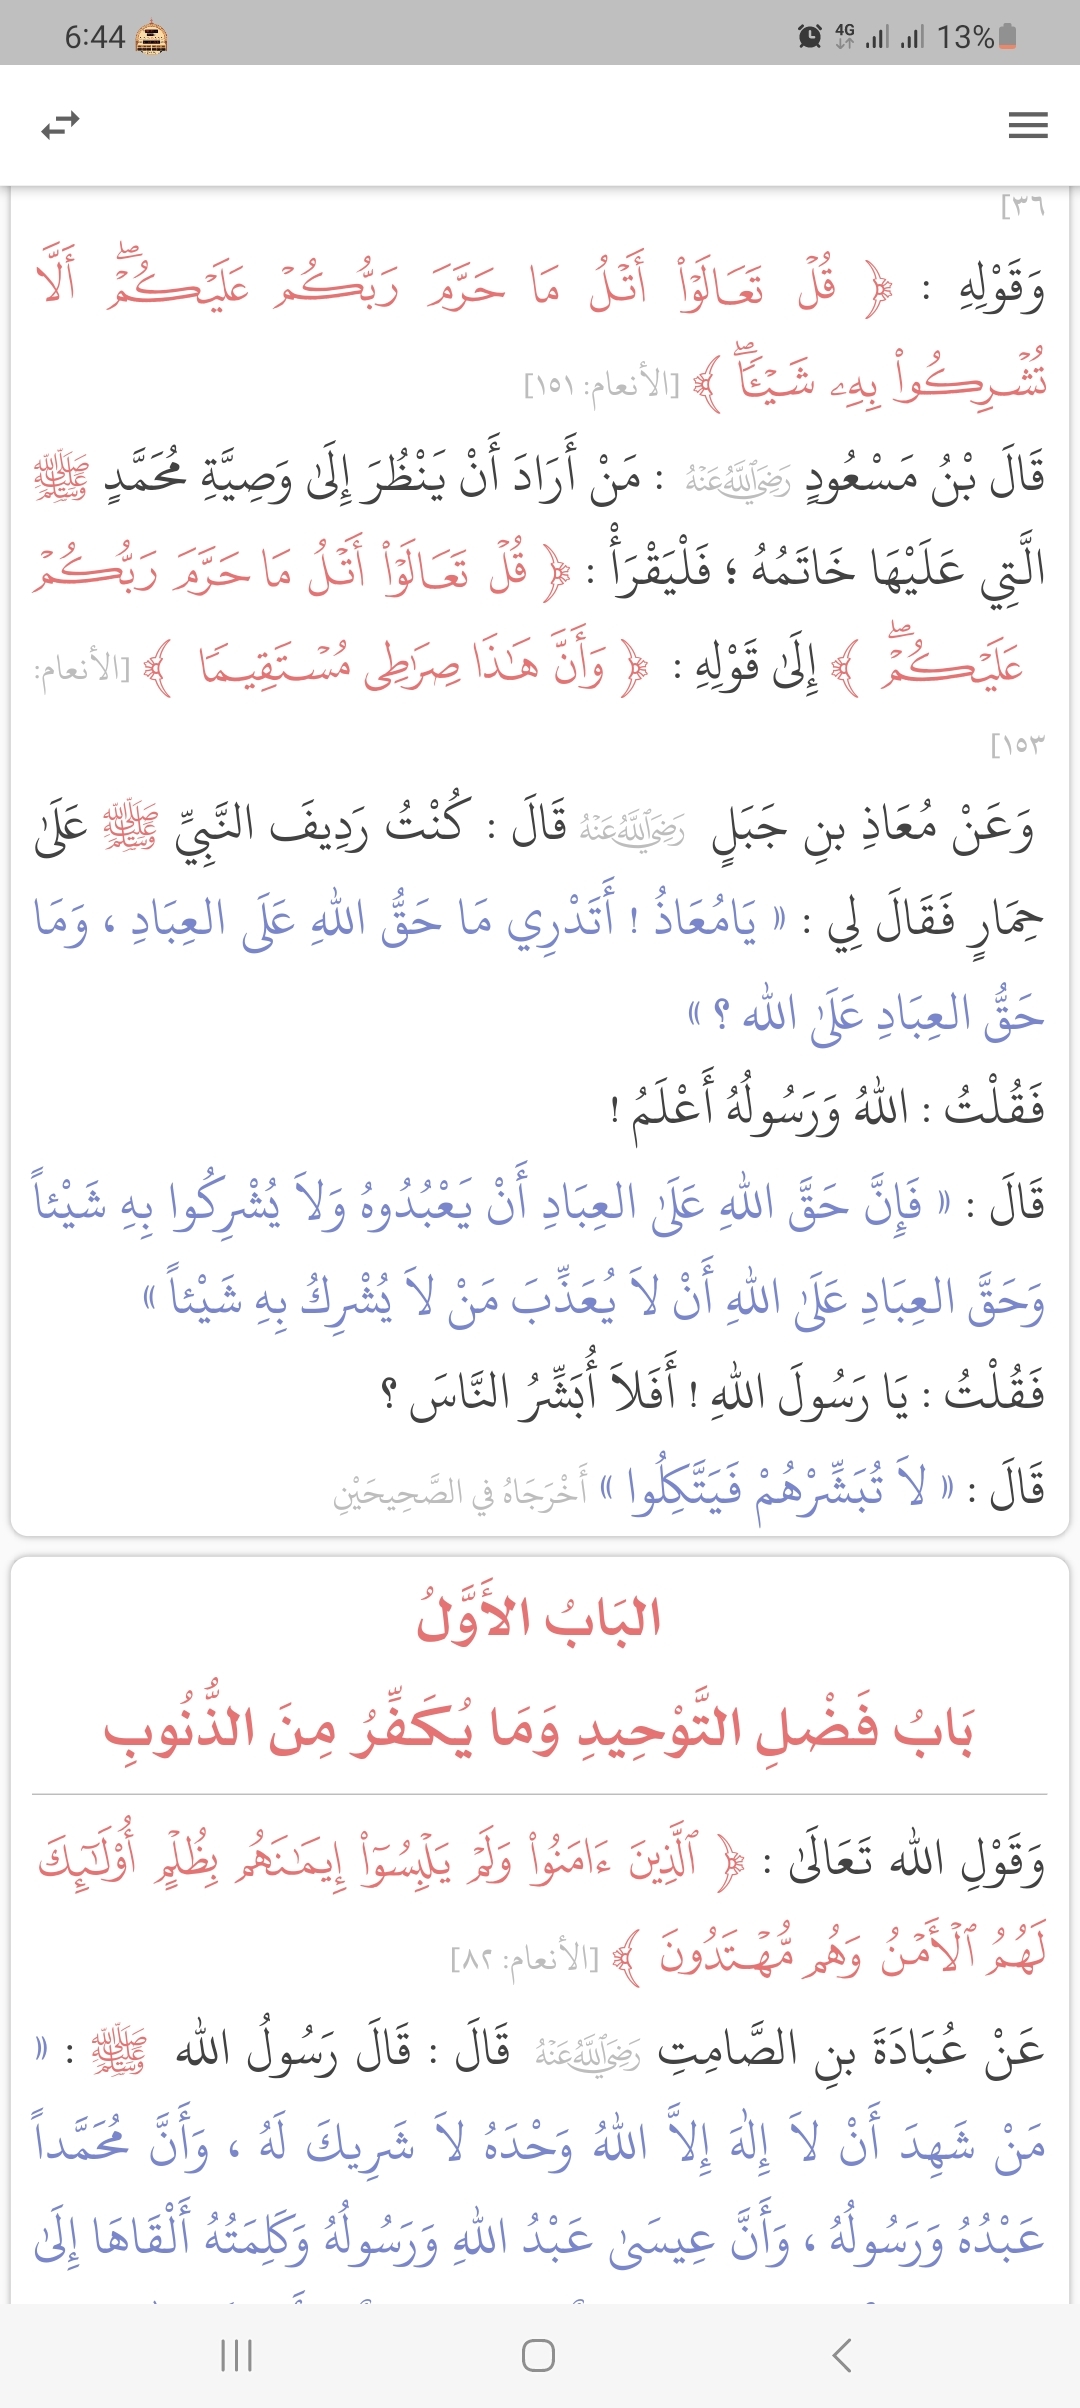 6:44
4G 13%
٣٦]
وَقَوْلِهِ : ﴿ قُلْ تَعَالَوْا۟ أَتْلُ مَا حَرَّمَ رَبُّكُمْ عَلَيْكُمْ ۖ أَلَّا
تُشْرِكُوا۟ بِهِۦ شَيْـًٔا ۖ ﴾ [الأنعام: ١٥١]
قَالَ بْنُ مَسْعُودٍ رَضِيَ اللَّهُ عَنْهُ : مَنْ أَرَادَ أَنْ يَنْظُرَ إِلَىٰ وَصِيَّةِ مُحَمَّدٍ ﷺ
الَّتِي عَلَيْهَا خَاتَمُهُ ؛ فَلْيَقْرَأْ : ﴿ قُلْ تَعَالَوْا۟ أَتْلُ مَا حَرَّمَ رَبُّكُمْ
عَلَيْكُمْ ۖ ﴾ إِلَىٰ قَوْلِهِ : ﴿ وَأَنَّ هَـٰذَا صِرَٰطِى مُسْتَقِيمًا ﴾ [الأنعام:
١٥٣]
وَعَنْ مُعَاذِ بنِ جَبَلٍ رَضِيَ اللَّهُ عَنْهُ قَالَ : كُنْتُ رَدِيفَ النَّبِيِّ ﷺ عَلَىٰ
حِمَارٍ فَقَالَ لِي : « يَامُعَاذُ ! أَتَدْرِي مَا حَقُّ اللهِ عَلَى العِبَادِ ، وَمَا
حَقُّ العِبَادِ عَلَىٰ الله ؟ »
فَقُلْتُ : اللهُ وَرَسُولُهُ أَعْلَمُ !
قَالَ : « فَإِنَّ حَقَّ اللهِ عَلَىٰ العِبَادِ أَنْ يَعْبُدُوهُ وَلاَ يُشْرِكُوا بِهِ شَيْئاً
وَحَقَّ العِبَادِ عَلَىٰ اللهِ أَنْ لاَ يُعَذِّبَ مَنْ لاَ يُشْرِكُ بِهِ شَيْئاً »
فَقُلْتُ : يَا رَسُولَ اللهِ ! أَفَلاَ أُبَشِّرُ النَّاسَ ؟
قَالَ : « لاَ تُبَشِّرْهُمْ فَيَتَّكِلُوا » أَخْرَجَاهُ فِي الصَّحِيحَيْنِ
البَابُ الأَوَّلُ
بَابُ فَضْلِ التَّوْحِيدِ وَمَا يُكَفِّرُ مِنَ الذُّنُوبِ
وَقَوْلِ الله تَعَالَىٰ : ﴿ ٱلَّذِينَ ءَامَنُوا۟ وَلَمْ يَلْبِسُوٓا۟ إِيمَـٰنَهُم بِظُلْمٍ أُو۟لَـٰٓئِكَ
لَهُمُ ٱلْأَمْنُ وَهُم مُّهْتَدُونَ ﴾ [الأنعام: ٨٢]
عَنْ عُبَادَةَ بنِ الصَّامِتِ رَضِيَ اللَّهُ عَنْهُ قَالَ : قَالَ رَسُولُ الله ﷺ : «
مَنْ شَهِدَ أَنْ لاَ إِلٰهَ إِلاَّ اللهُ وَحْدَهُ لاَ شَرِيكَ لَهُ ، وَأَنَّ مُحَمَّداً
عَبْدُهُ وَرَسُولُهُ ، وَأَنَّ عِيسَىٰ عَبْدُ اللهِ وَرَسُولُهُ وَكَلِمَتُهُ أَلْقَاهَا إِلَىٰ